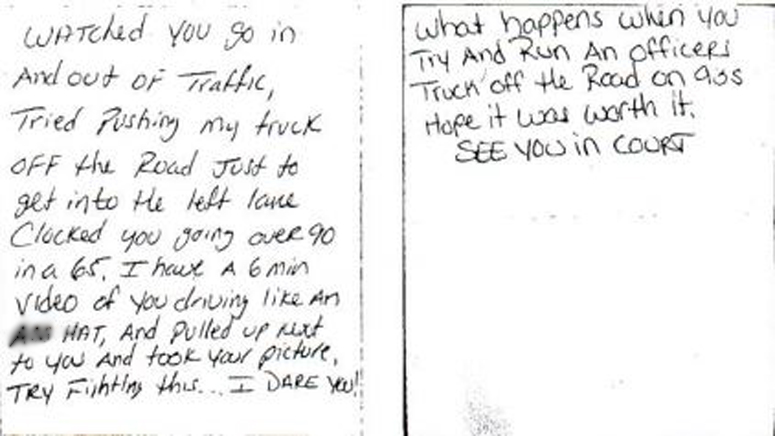 WATched YOU go in
And out of Traffic,
Tried Pushing my truck
OFF the Road Just to
get into the left lane
Clocked you going over 90
in a 65. I have A 6 min
video of you driving like An
HAT, And Pulled up next
to you And took your picture.
TRY Fighting this... I DARE YOU!
What happens when you
Try And Run An officers
Truck off the Road on 93s
Hope it was worth it.
SEE YOU in COURT